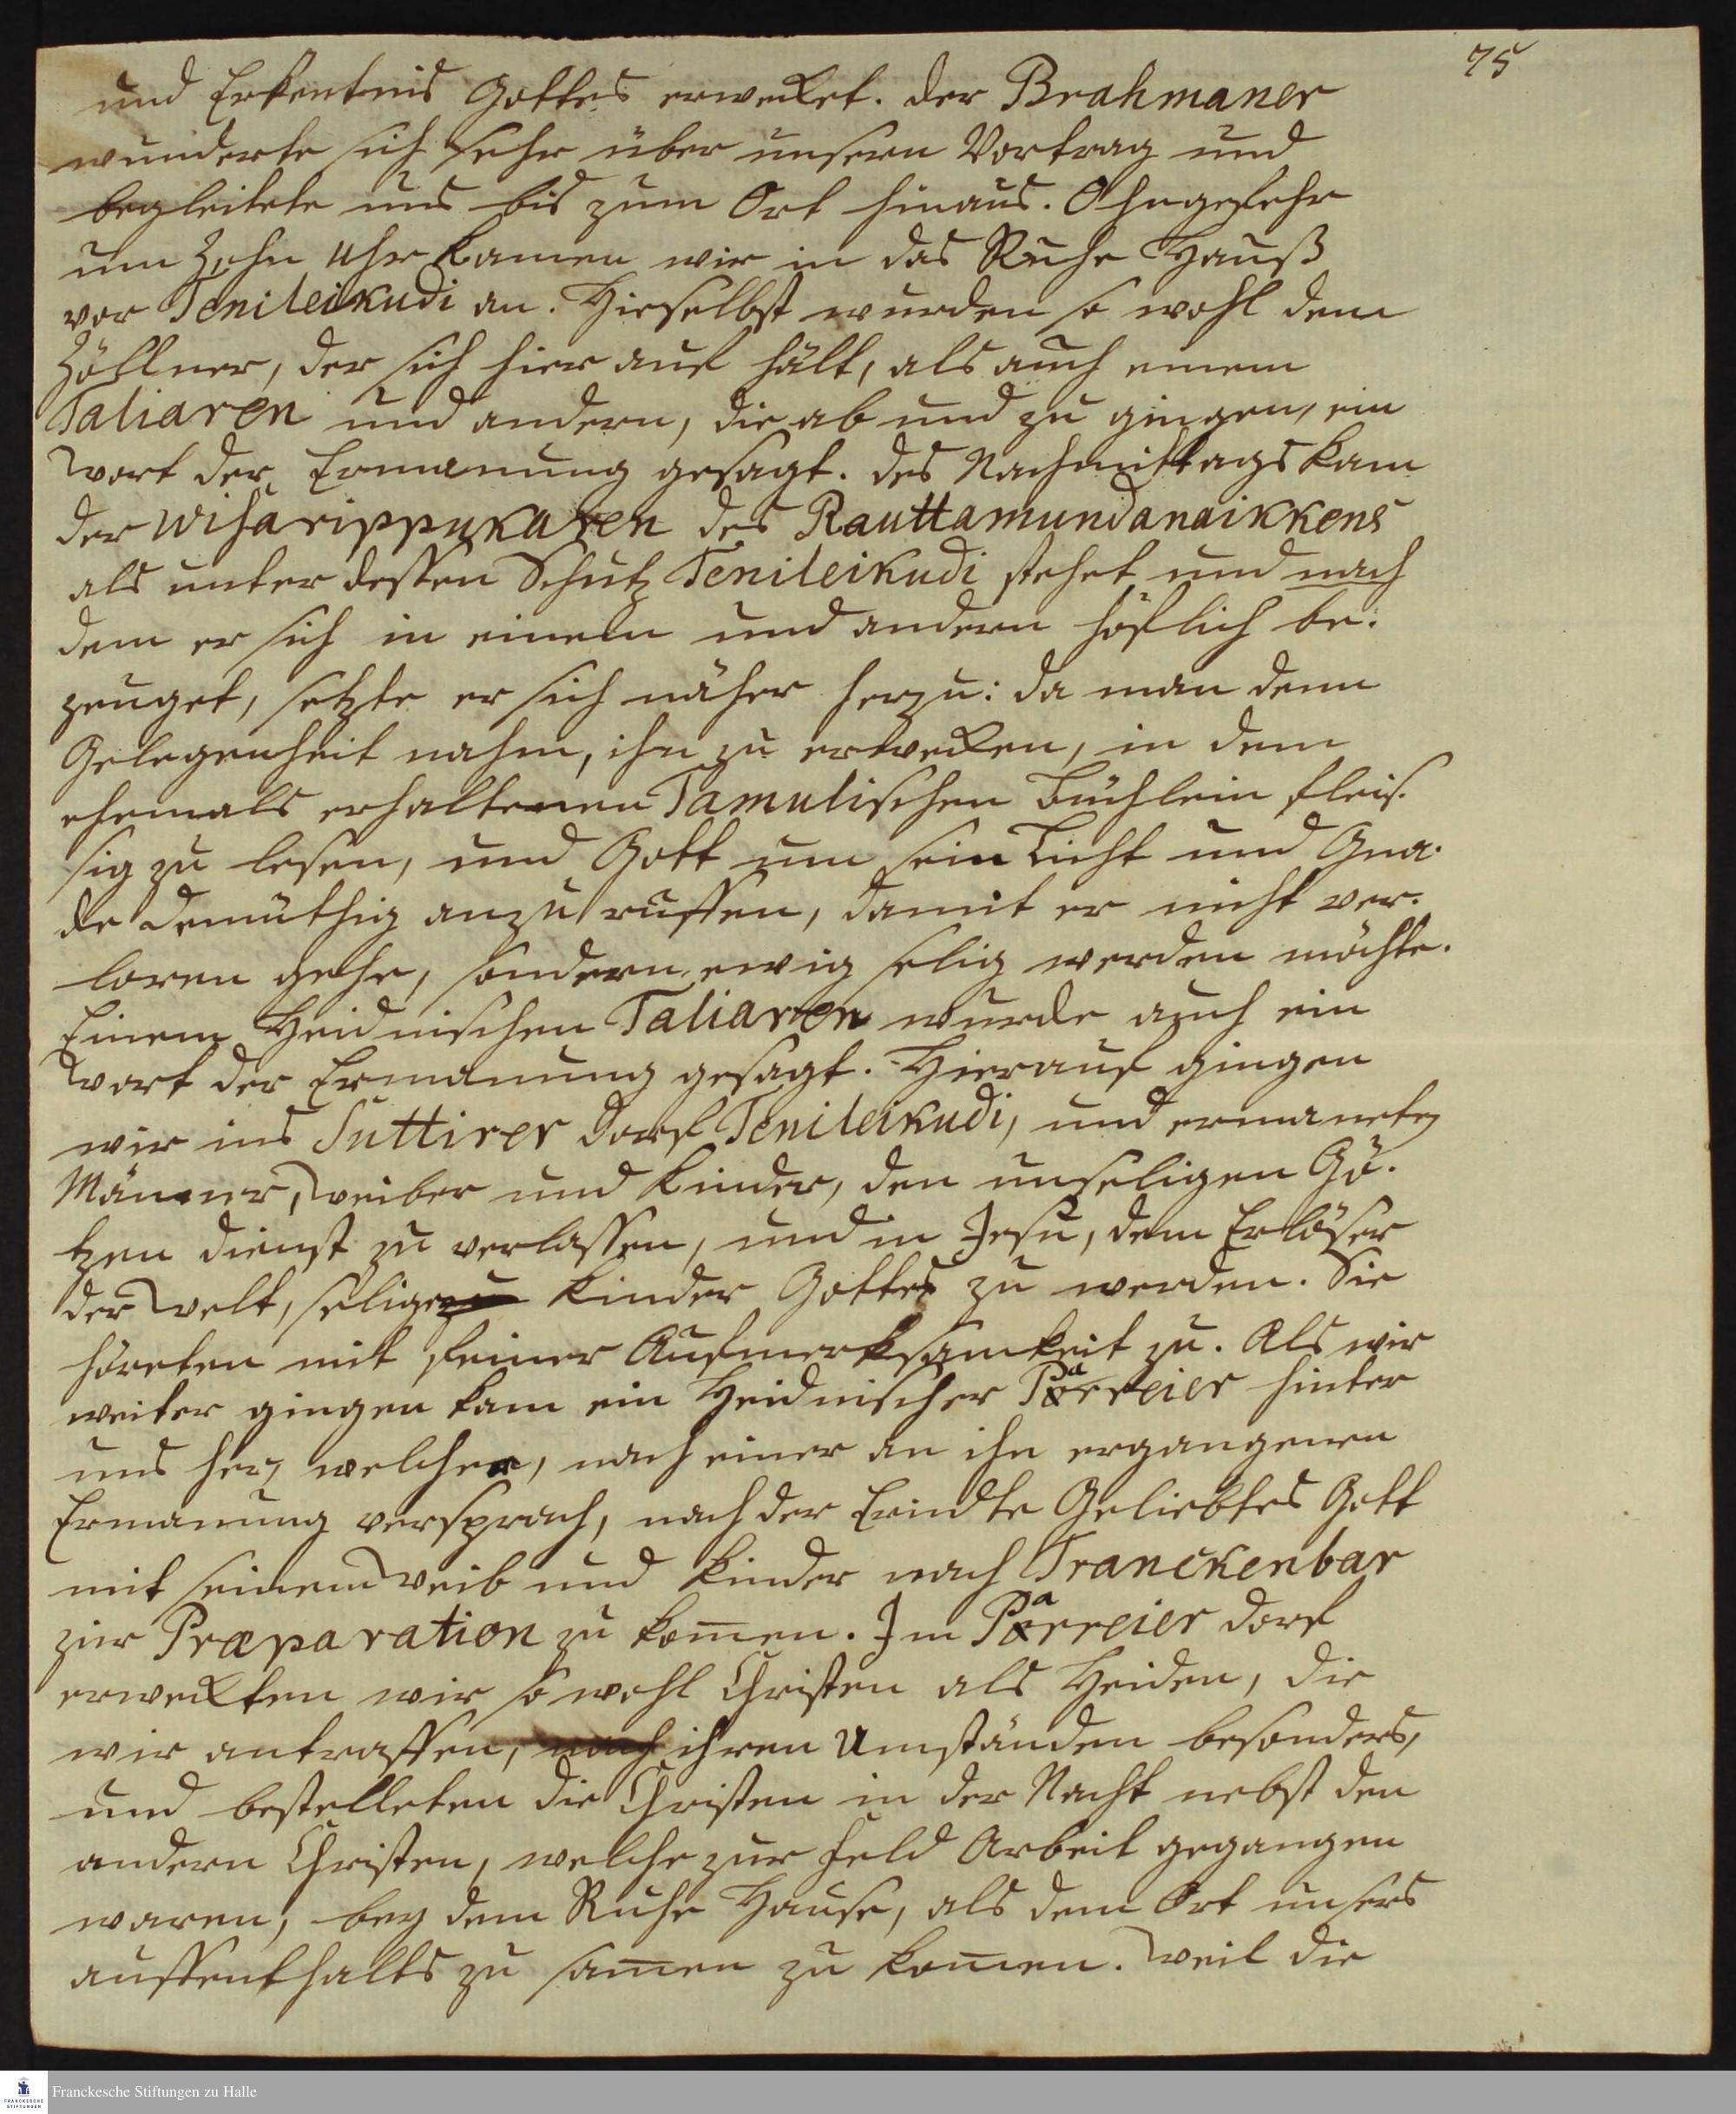 75
und Erkentnis Gottes erwecket. der Brahmaner
wunderte sich sehr über unsern Vortrag und
begleitete uns bis zum Ort hinaus. Ohngefehr
um Zehn Uhr kamen wir in das Ruhe Hauß
vor Tenileikudi an. Hieselbst wurden so wohl dem
Zöllner, der sich hier auf hält, als auch einem
Taliaren und andern, die ab und zu gingen, ein
Wort der Ermanung gesagt. des Nachmittags kam
der Wisarippukaren des Rauttamundanaikkens
als unter dessen Schutz Tenileikudi stehet und nach
dem er sich in einem und andern höflich be-
zeuget, setzte er sich näher herzu: da man denn
Gelegenheit nahm, ihn zu erwecken, in dem
ehemals erhaltenen Tamulischen Büchlein fleis-
sig zu lesen, und Gott um sein Licht und Gna-
de demüthig anzu ruffen, damit er nicht ver-
loren gehe, sondern ewig selig werden möchte.
Einem Heidnischen Taliaren wurde auch ein
Wort der Ermanung gesagt. Hierauf gingen
wir ins Suttirer Dorf Tenileikudi, und ermaneten
Männer, Weiber und Kinder, den unseligen Gö-
tzen dienst zu verlassen, und in Jesu, dem Erlöser
der Welt, selige Kinder Gottes zu werden. Sie
höreten mit feiner Aufmerksamkeit zu. Als wir
weiter gingen kam ein Heidnischer Parreier hinter
uns her, welcher, nach einer an ihn ergangenen
Ermanung versprach, nach der Erndte Geliebtes Gott
mit seinem Weib und Kinder nach Tranckenbar
zur Præparation zu kom̄en. Im Parreier Dorf
erweckten wir so wohl Christen als Heiden, die
wir antraffen, nach ihren Umständen besonders,
und bestelleten die Christen in der Nacht nebst den
andern Christen, welche zur Feld Arbeit gegangen
waren, bey dem Ruhe Hause, als dem Ort unsers
auffenthalts zu sam̄en zu kom̄en. Weil die
Franckesche Stiftungen zu Halle
FRANCKESCHE
STIFTUNGEN